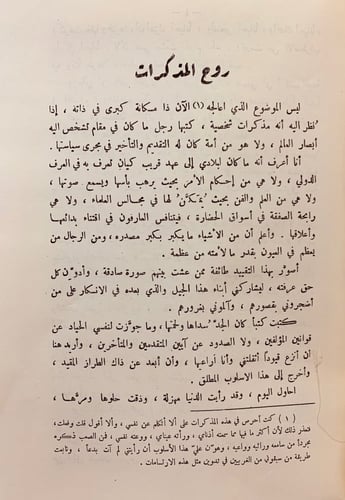 روح المذكرات
ليس الموضوع الذي اعالجه (١) الآن ذا مكانة كبرى في ذاته ، إذا
نُظر اليه أنه مذكرات شخصية ، كتبها رجل ما كان في مقام تشخص اليه
أبصار العالم ، ولا هو من أمة كان له التقديم والتأخير في مجرى سياستها .
أنا أعرف أنه ما كان لبلادي إلى عهد قريب كيان تُعرف به في العرف
الدولي ، ولا هي من إحكام الأمر بحيث يرهب بأسها ويسمع صوتها ،
ولا هي من العلم والفن بحيث يُمَكَّن لها في مجالس العلماء ، ولا هي
رابحة الصفقة في أسواق الحضارة ، فيتنافس العارفون في اقتناء بدائعها
وأعلاقها . وأعلم أن من الأشياء ما يكبر بكبر مصدره ، ومن الرجال من
يعظم في العيون بقدر ما لأمته من عظمة .
أصوّر بهذا التقييد طائفة ممن عشت بينهم صورة صادقة ، وأدوّن كل
حق عرفته ، ليشاركني أبناء هذا الجيل والذي بعده في الانكار على من
أضجروني بقصورهم ، وآلموني بغرورهم .
كتبت كتباً كان الجدّ سداها ولحمتها ، وما جوّزت لنفسي الحياد عن
قوانين المؤلفين ، ولا الصدود عن آيين المتقدمين والمتأخرين ، وأربدهنا
أن أنزع قيوداً أثقلتني وأنا أراعيها ، وأن أبعد عن ذاك الطراز المقيد ،
وأخرج إلى هذا الأسلوب المطلق .
احاول اليوم ، وقد رأيت الدنيا مهزلة ، وذقت حلوها ومرّها ،
( ١ ) كنت أحرص في هذه المذكرات على ألا أتكلم عن نفسي ، وألا أقول قلت وفعلت ،
فتعذر ذلك لأن أكثر ما فيها مما سمعته أذناي ، ورأته عيناي ، ووعته نفسي ، فمن الصعب ذكره
مجرداً من سامعه ورائيه وواعيه ، وهوّن عليّ هذا الأسلوب أن رأيتني لم آت بدعاً ، وتابعت
طريقة من سبقوني من الغربيين في تدوين مثل هذه الارتسامات .